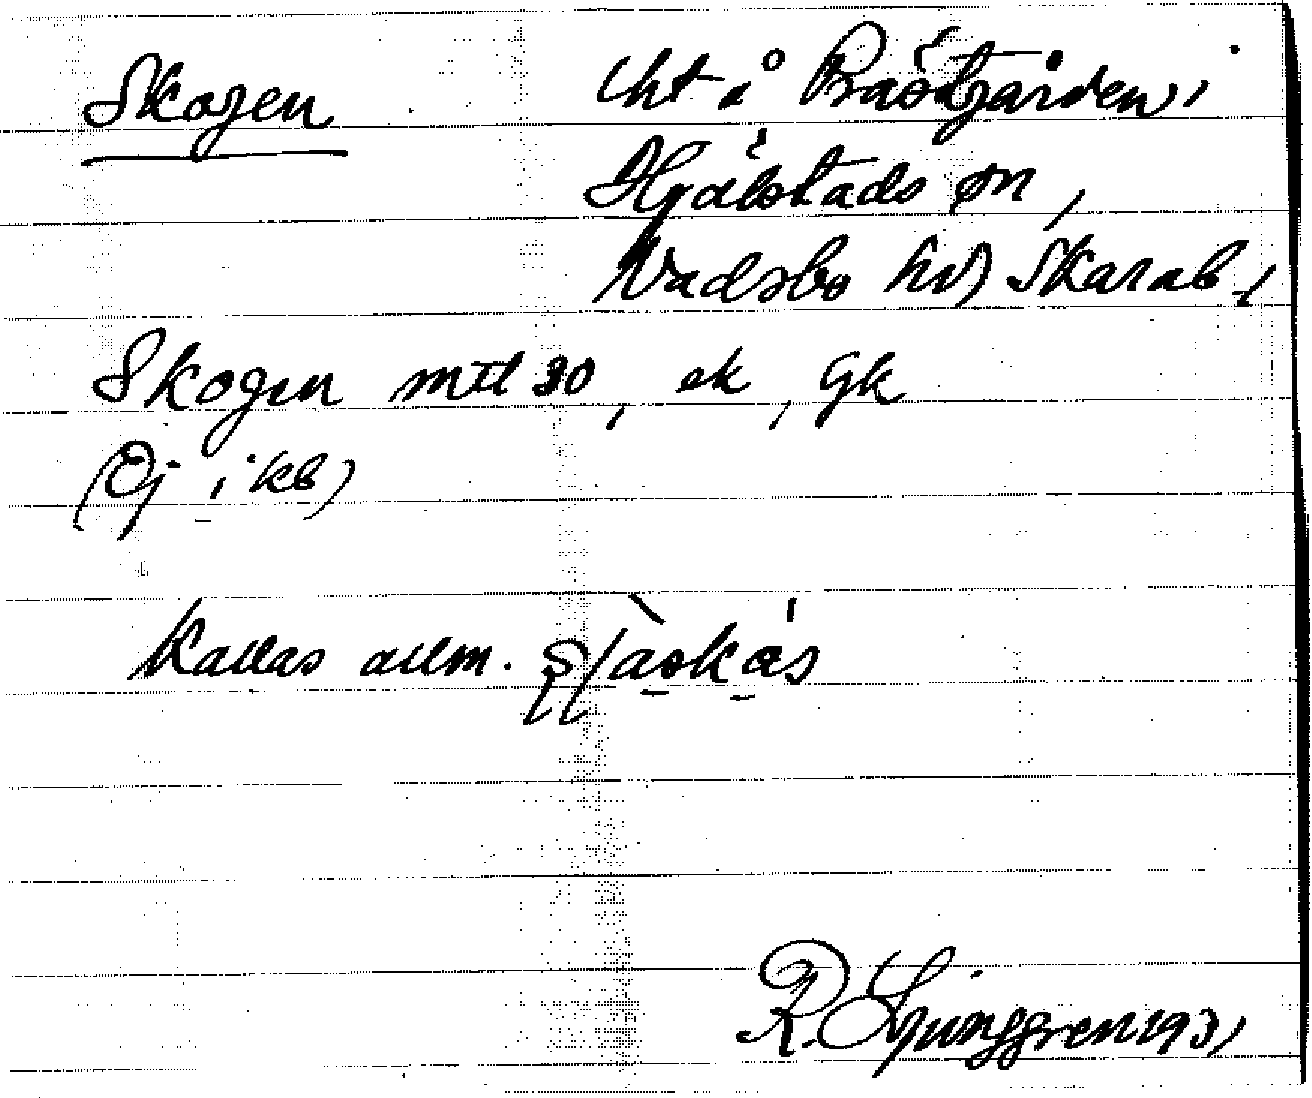 Skogen
lht å Prästgården i
Hjälstads sn,
Vadsbo hd, Skarab. l
Skogen mtl 30, ek, Gk
(Ej i kb)
Kallas allm.
R. Ljunggren 1931